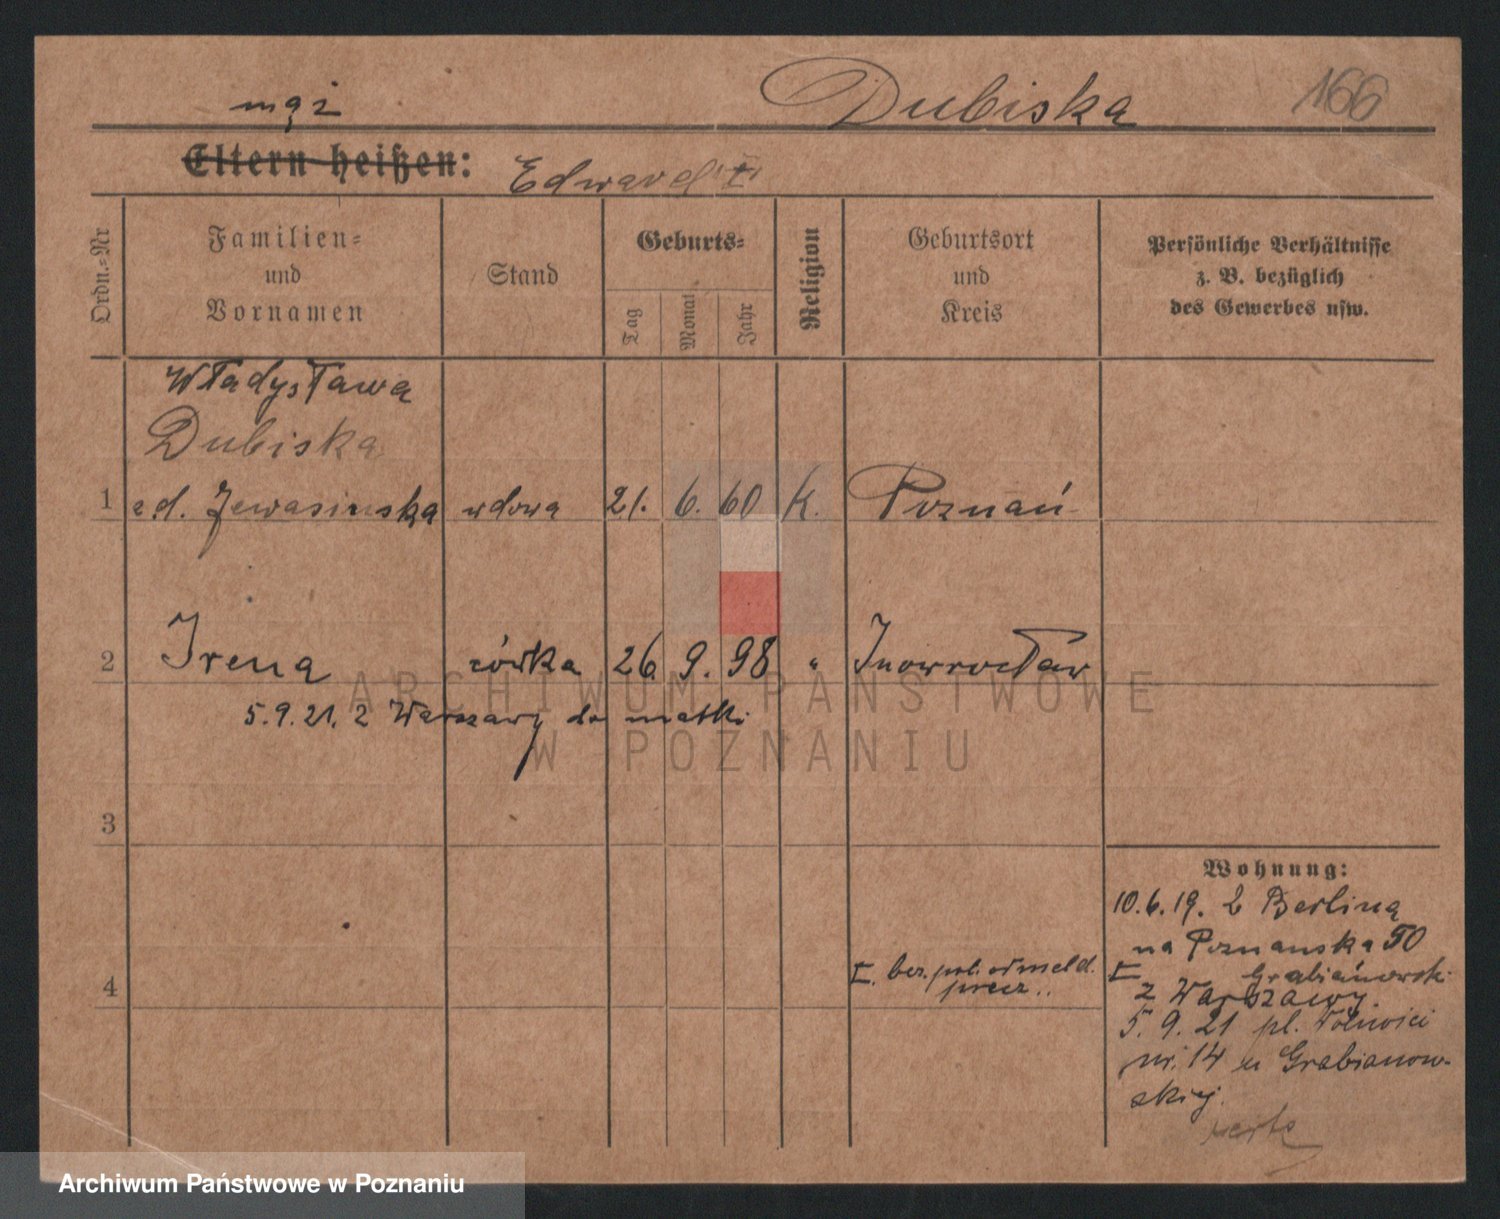 mąż Dubiska 166
Eltern heißen: Edward
Ordn.=Nr
Familien=
und
Vornamen
Stand
Geburts=
Tag
Monat
Jahr
Religion
Geburtsort
und
Kreis
Persönliche Verhältnisse
z. B. bezüglich
des Gewerbes usw.
Władysława
Dubiska
1 wdowa 21. 6. 60 K. Poznań
2 Irena córka 26. 9. 98 " Inowrocław
5.9.21. z Warszawy do matki
3
4
bez. pol. odmeld.
Wohnung:
10.6.19. z Berlina
na Poznańska 50
Grabianowski
z Warszawy.
5. 9. 21 pl. Wolności
nr. 14 u Grabianow-
skiej.
verte
ARCHIWUM PAŃSTWOWE
W POZNANIU
Archiwum Państwowe w Poznaniu